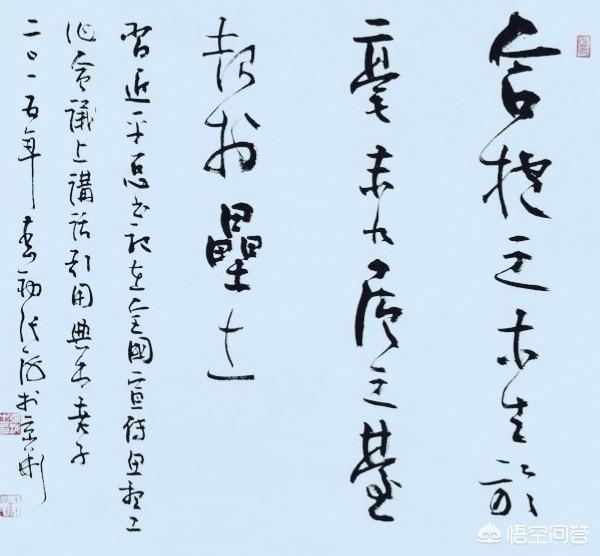 合抱之木生於
毫末九層之臺
起於壘土
習近平总书记在全國宣传思想工
作會議上講話引用典出老子
二〇一五年春初於京
悟空问答